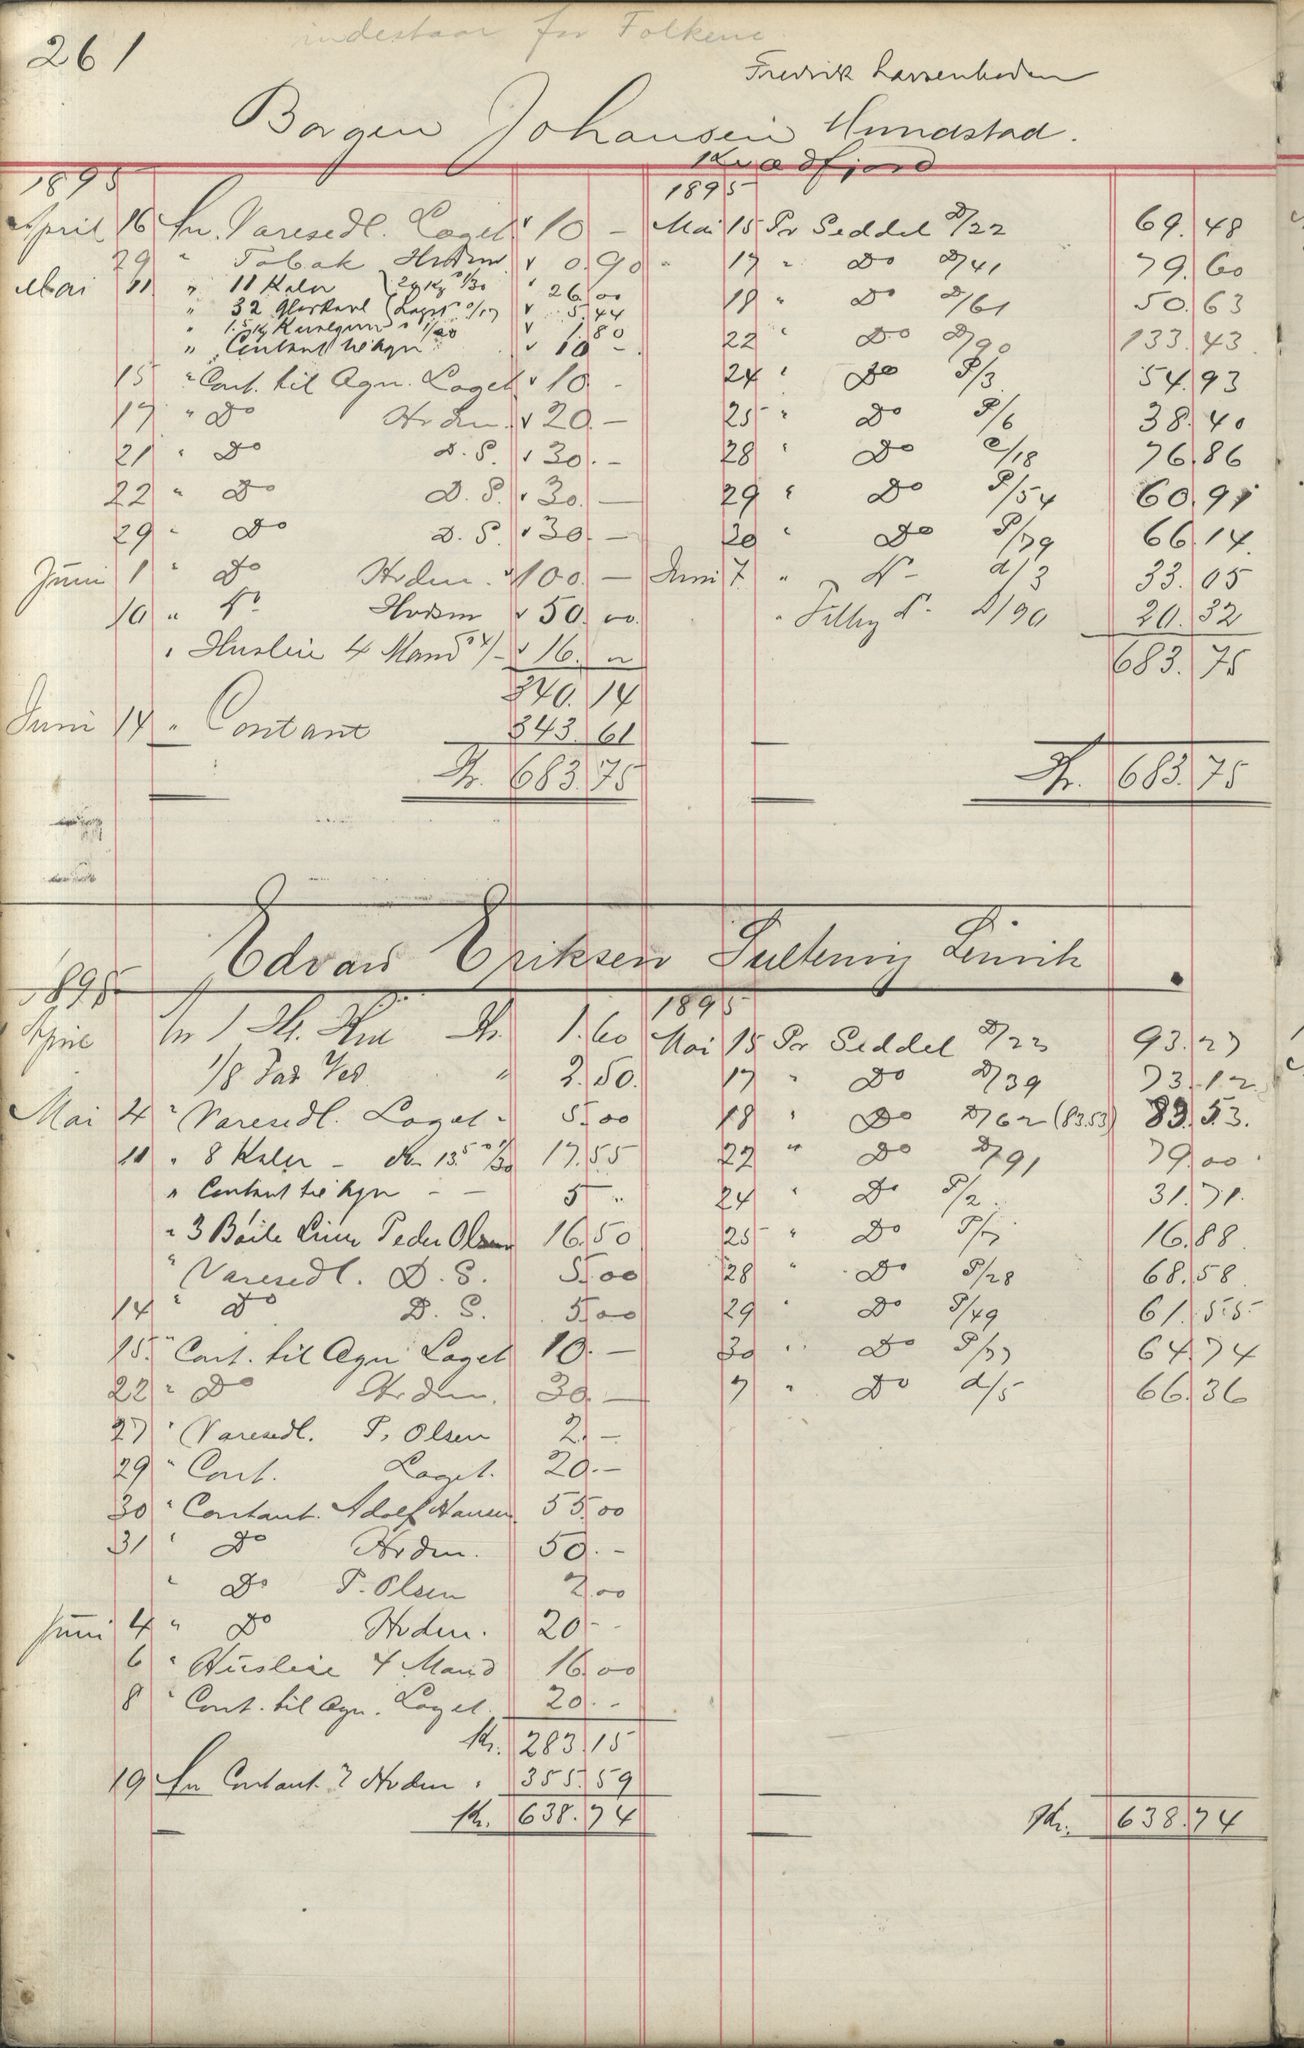 261
indestaar for Folkene
Fredrik Larsenboden
Borgen Johansen Hundstad.
Kvædfjord
1895
April 16 An. Varesedl. Laget 10 -
29 " Tobak Hvdm 0.90
Mai 11 " 11 Kaler 26.00
" 32 Glaskavl Laget 0/17 5.44
" 1.5 Kg 1.80
" Contant til Agn 10 -
15 " Cont. til Agn. Laget 10. -
17 " Do Hvdm. 20. -
21 " Do D. S. 30. -
22 " Do D. S. 30. -
29 " Do D. S. 30. -
Juni 1 " Do Hvdm. 100. -
10 " Do Hvdm 50.00
" Husleie 4 Mand a 4/- 16.
340.14
Juni 14 " Contant 343.61
Kr. 683.75
1895
Mai 15 Pr Seddel D/22 69.48
" 17 " Do D/41 79.60
18 " Do D/61 50.63
22 " Do D/90 133.43
24 " Do P/3 54.93
25 " Do P/6 38.40
28 " Do P/18 76.86
29 " Do P/54 60.91
30 " Do P/79 66.14
Juni 7 " Do d/3 33.05
" Do D/90 20.32
683.75
Kr. 683.75
Edvard Eriksen Lenvik
1895
April An 1 Kr. 1.60
1/8 Fad Ved " 2.50
Mai 4 " Varesedl. Laget 5.00
11 " 8 Kaler - 13.5 a 1/30 17.55
" Contant til Agn - - 5 "
" 3 Liner Peder Olsen 16.50
" Varesedl. D. S. 5.00
14 " Do D. S. 5.00
15. " Cont. til Agn Laget 10. -
22 " Do Hvdm. 30. -
27 " Varesedl. P. Olsen 2. -
29 " Cont. Laget. 20. -
30 " Contant. Adolf Hansen 55.00
31 " Do Hvdm. 50. -
" Do P. Olsen 2.00
Juni 4 " Do Hvdm. 20 -
6 " Husleie 4 Mand 16.00
8 " Cont. til Agn. Laget 20. -
Kr. 283.15
19 An Contant Hvdm " 355.59
Kr. 638.74
1895
Mai 15 Pr Seddel D/23 93.27
17 " Do D/39 73.12
18 " Do D/62 (83.53) 83.53.
22 " Do D/91 79.00
24 " Do P/2 31.71
25 " Do P/7 16.88
28 " Do P/28 68.58
29 " Do P/49 61.55
30 " Do P/77 64.74
7 " Do d/5 66.36
Kr. 638.74